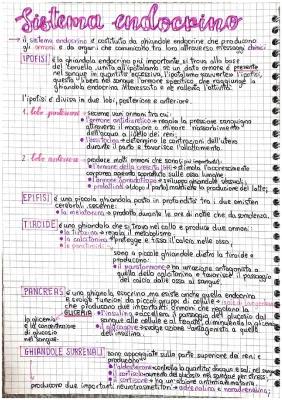 Sistema endocrino
il sistema endocrino è costituito da ghiandole endocrine che producono
gli ormoni e da organi che comunicano tra loro attraverso messaggi chimici.
IPOFISI è la ghiandola endocrina più importante, si trova alla base
del cervello, unita all'ipotalamo. se un dato ormone è presente
nel sangue in quantità eccessiva, l'ipotalamo avverte l'ipofisi,
questa libera nel sangue l'ormone specifico, che raggiunge la
ghiandola interessata e ne rallenta l'attività.
l'ipofisi è divisa in due lobi, posteriore e anteriore.
1. lobo posteriore → secerne vari ormoni tra cui:
l'ormone antidiuretico → regola la pressione sanguigna
attraverso il maggiore o minore riassorbimento
dell'acqua a livello dei reni.
l'ossitocina → determina le contrazioni dell'utero
durante il parto e favorisce l'allattamento.
2. lobo anteriore → produce molti ormoni che sono (i più importanti):
l'ormone della crescita (GH) → stimola l'accrescimento
corporeo agendo soprattutto sulle ossa lunghe
→ sviluppo ghiandole sessuali;
prolattina → (dopo il parto) mantiene la produzione del latte;
EPIFISI è una piccola ghiandola posta in profondità tra i due emisferi
cerebrali, secerne:
la melatonina → prodotta durante le ore di notte che dà sonnolenza.
TIROIDE è una ghiandola che si trova nel collo e produce due ormoni:
la tiroxina → regola il metabolismo
la calcitonina → protegge e fissa il calcio nelle ossa,
le paratiroidi →
sono 4 piccole ghiandole dietro la tiroide e
producono:
il paratormone → ha un'azione antagonista a
quella della calcitonina e favorisce il passaggio
del calcio dalle ossa al sangue.
PANCREAS è una ghiandola esocrina, ma esiste anche quella endocrina
e svolge funzioni da piccoli gruppi di cellule →
che producono due importanti ormoni che regolano la
GLICEMIA → l'insulina → accellera il passaggio del glucosio dal
la glicemia sangue alle cellule e ai tessuti, diminuendo la glicemia
è la concentrazione il glucagone → svolge azione antagonista a quella
di glucosio dell'insulina.
nel sangue.
GHIANDOLE SURRENALI sono appoggiate sulla parte superiore dei reni e
producono:
l'aldosterone → controlla la quantità d'acqua e sali nel sangue
il cortisolo → aumenta del glucosio nel sangue per stress.
il cortisone → ha un'azione antinfiammatoria
producono due importanti neurotrasmettitori → adrenalina e noradrenalina;